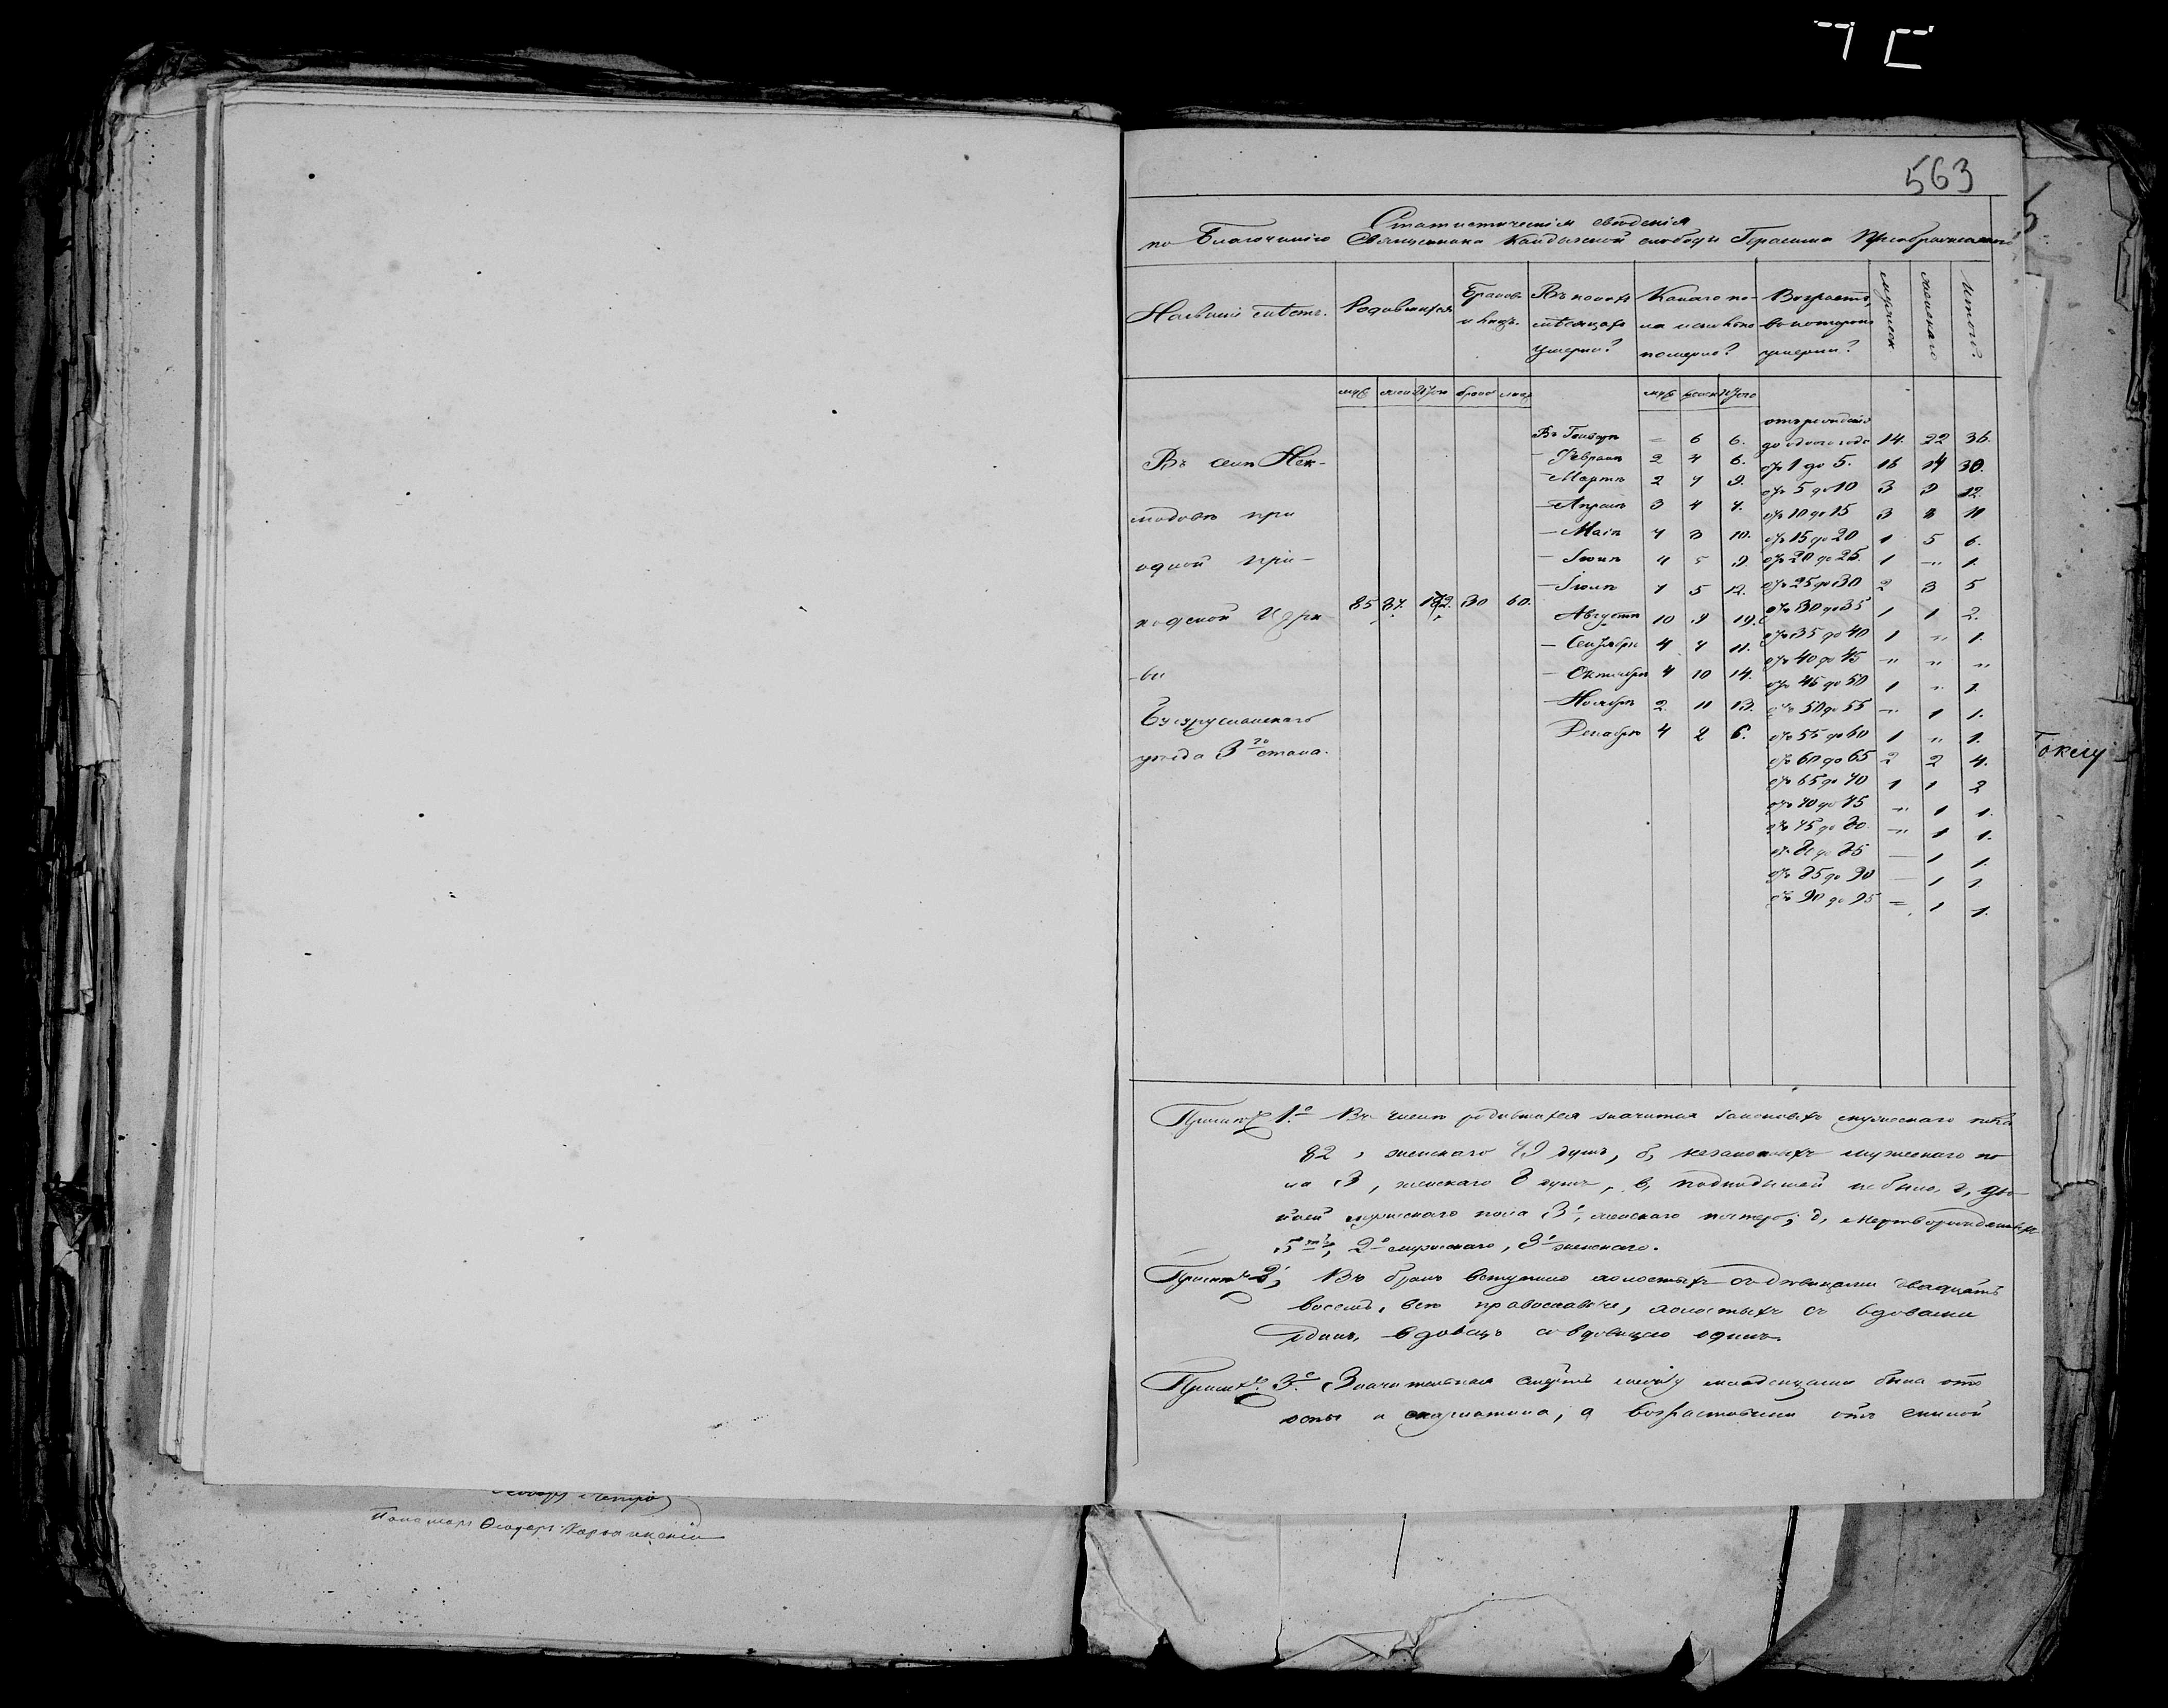 563
Статистическія свѣдѣнія
по Благочинію Священника Кандызской слободы Герасима Преображенскаго
Названіе мѣстъ. Родившихся Браковъ и лицъ. Въ какихъ мѣсяцахъ умерли? Какого пола и сколько померло? Возрастъ, въ которомъ умерли? мужеск женскаго Итого.
муж женс Итого брак лицъ муж женск Итого
отъ рожденія
Въ Генварѣ – 6 6. до одного года 14. 22 36.
Въ селѣ Нек-
– Февралѣ 2 4 6. отъ 1 до 5. 16 14 30.
– Мартѣ 2 7 9. отъ 5 до 10 3 9 12.
модовѣ при
– Апрѣлѣ 3 4 7. отъ 10 до 15 3 8 11
– Маіѣ 7 3 10. отъ 15 до 20 1 5 6.
одной при-
– Іюнѣ 4 5 9. отъ 20 до 25. 1 " 1.
– Іюлѣ 7 5 12. отъ 25 до 30 2 3 5
ходской Церк
85 87. 172. 30 60.
Августѣ 10 9 19. отъ 30 до 35 1 1 2.
– Сентябрѣ 4 7 11. отъ 35 до 40 1 " 1.
-ви
– Октябрѣ 4 10 14. отъ 40 до 45 " " "
– Ноябрѣ 2 11 13. отъ 45 до 50 1 " 1.
Бугурусланскаго
Декабрѣ 4 2 6. отъ 50 до 55 " 1 1.
уѣзда 3го стана.
отъ 55 до 60 1 " 1.
отъ 60 до 65 2 2 4.
отъ 65 до 70 1 1 2
отъ 70 до 75 " 1 1.
отъ 75 до 80. " 1 1.
отъ 80 до 85 – 1 1.
отъ 85 до 90 – 1 1
отъ 90 до 95 – 1 1.
1е Въ числѣ родившихся значится законныхъ мужескаго пола
82, женскаго 79 душъ, б, незаконныхъ мужескаго по
ла 3, женскаго 8 душъ, в, подкидышей не было, г, дво
йней мужескаго пола 3, женскаго пятеро; д, мертворожденныхъ
5ть, 2е мужескаго, 3 женскаго.
2, Въ бракъ вступило холостыхъ съ дѣвицами двадцать
восемь, всѣ православные, холостыхъ съ вдовами
одинъ, вдовецъ со вдовицею одинъ.
3е Значительная смерть между младенцами была отъ
оспы и скарлатина, а возрастными отъ
Ѳеодоръ